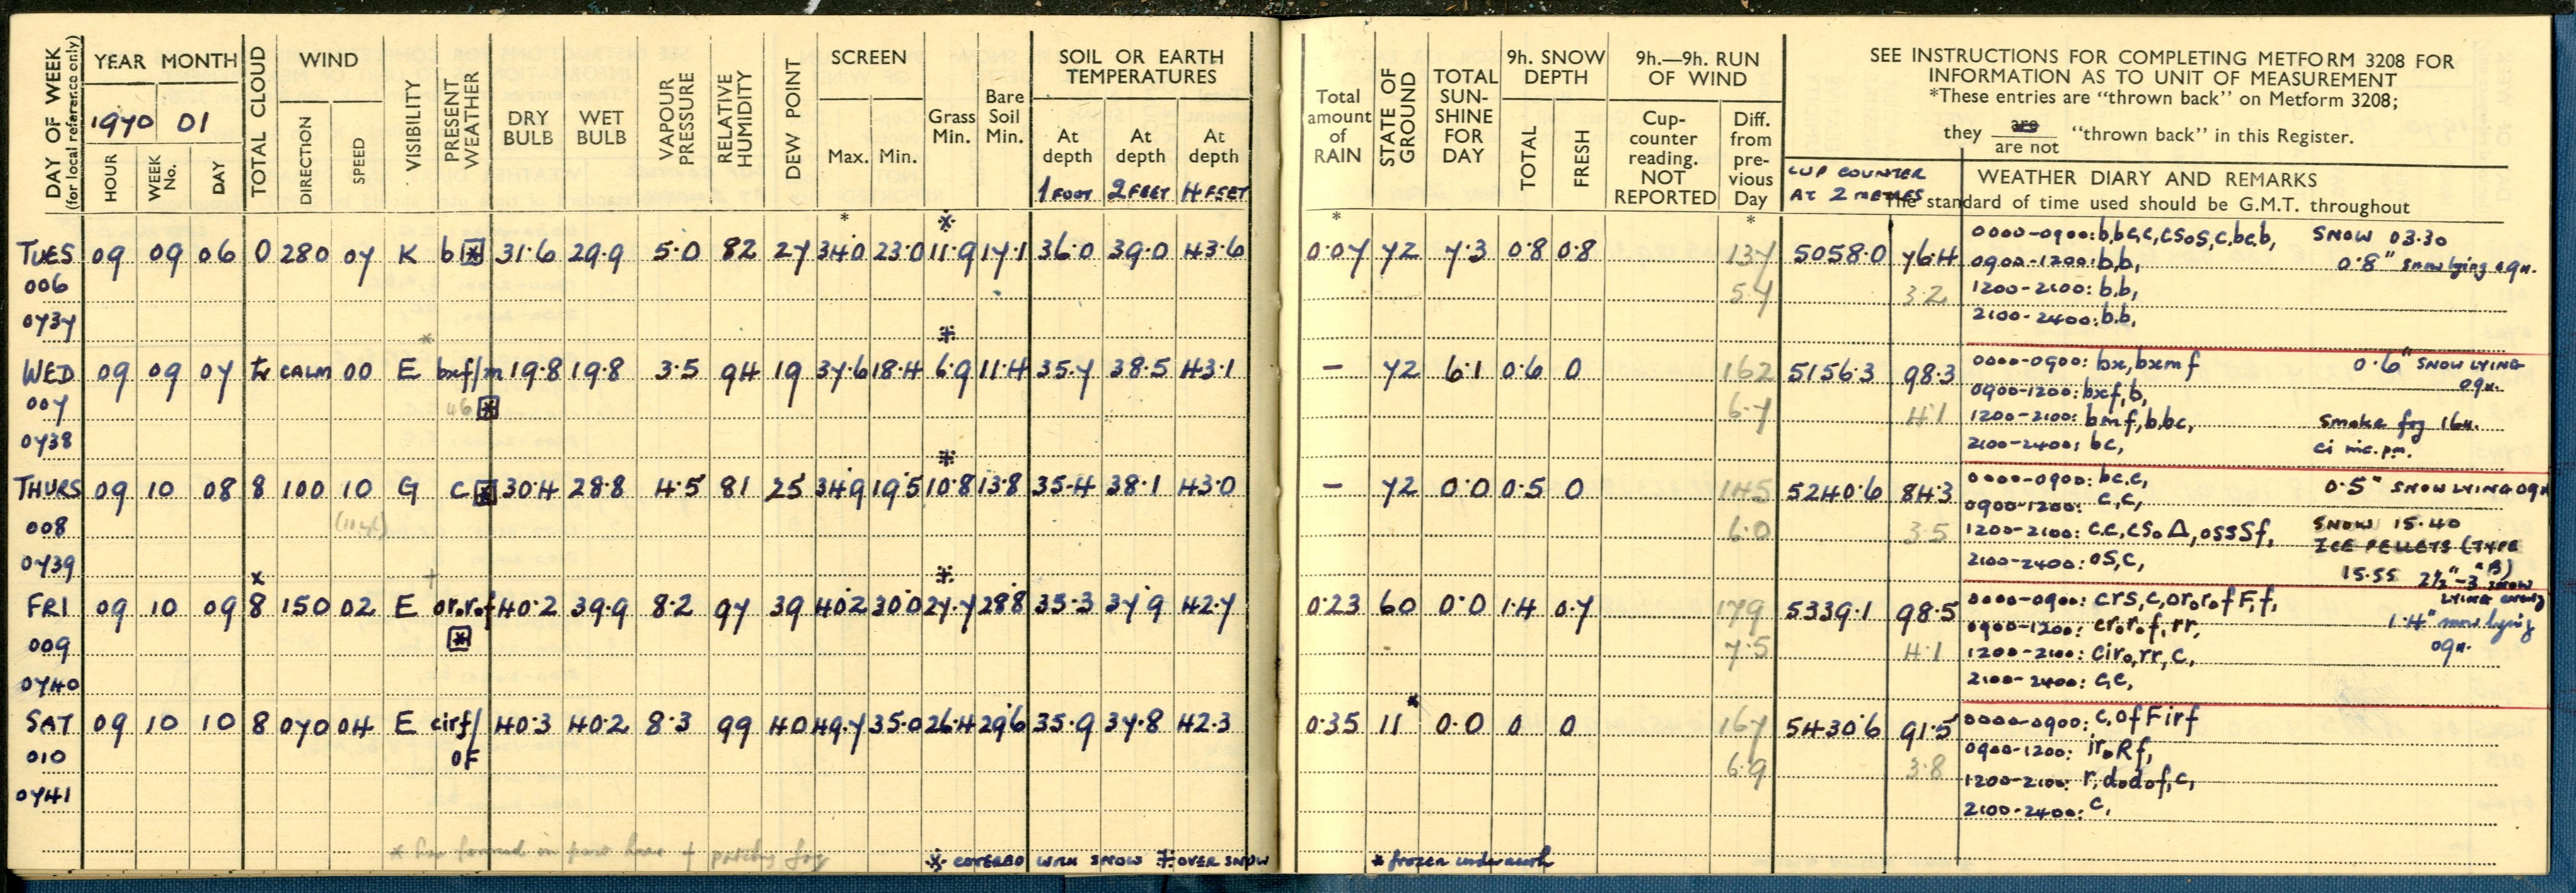 DAY OF WEEK (for local reference only)
YEAR MONTH
1970 01
HOUR WEEK No. DAY
TOTAL CLOUD
WIND
DIRECTION SPEED
VISIBILITY
PRESENT WEATHER
DRY BULB
WET BULB
VAPOUR PRESSURE
RELATIVE HUMIDITY
DEW POINT
SCREEN
Max. Min.
Grass Min.
Bare Soil Min.
SOIL OR EARTH TEMPERATURES
At depth At depth At depth
1 FOOT 2 FEET 4 FEET
Total amount of RAIN
STATE OF GROUND
TOTAL SUN-SHINE FOR DAY
9h. SNOW DEPTH
TOTAL FRESH
9h.—9h. RUN OF WIND
Cup-counter reading. NOT REPORTED
Diff. from pre-vious Day
SEE INSTRUCTIONS FOR COMPLETING METFORM 3208 FOR
INFORMATION AS TO UNIT OF MEASUREMENT
*These entries are "thrown back" on Metform 3208;
they are / are not "thrown back" in this Register.
CUP COUNTER
AT 2 METRES
WEATHER DIARY AND REMARKS
The standard of time used should be G.M.T. throughout
TUES 09 09 06 0 280 07 K b 31.6 29.9 5.0 82 27 34.0 23.0 11.9 17.1 36.0 39.0 43.6 0.07 72 7.3 0.8 0.8 137 5058.0 76.4
006 5.7 3.2
0737
0000-0900: b,bc,c,cSoS,c,bc,b, SNOW 03.30
0900-1200: b,b, 0.8" snow lying 09H.
1200-2100: b,b,
2100-2400: b,b,
WED 09 09 07 tr CALM 00 E bxf/m 19.8 19.8 3.5 94 19 37.6 18.4 6.9 11.4 35.7 38.5 43.1 – 72 6.1 0.6 0 162 5156.3 98.3
007 46 6.7 4.1
0738
0000-0900: bx,bxmf 0.6" SNOW LYING 09H.
0900-1200: bxf,b,
1200-2100: bmf,b,bc, Smoke fog 16H.
2100-2400: bc, ci inc. pm.
THURS 09 10 08 8 100 10 G c 30.4 28.8 4.5 81 25 34.9 19.5 10.8 13.8 35.4 38.1 43.0 – 72 0.0 0.5 0 145 5240.6 84.3
008 6.0 3.5
0739
0000-0900: bc,c, 0.5" SNOW LYING 09H
0900-1200: c,c,
1200-2100: c,c,cSoΔ,osSSf, SNOW 15.40
ICE PELLETS (TYPE "B)
2100-2400: oS,c, 15.55 2½"-3 snow
FRI 09 10 09 8 150 02 E oror₀f 40.2 39.9 8.2 97 39 40.2 30.0 27.7 28.8 35.3 37.9 42.7 0.23 60 0.0 1.4 0.7 179 5339.1 98.5
009 7.5 4.1
0740
0000-0900: crs,c,or₀r₀fF,f, LYING
0900-1200: cr₀r₀f,rr, 1.4" snow lying
1200-2100: cir₀,rr,c, 09H.
2100-2400: c,c,
SAT 09 10 10 8 070 04 E cirf/ 40.3 40.2 8.3 99 40 49.7 35.0 26.4 29.6 35.9 37.8 42.3 0.35 11* 0.0 0 0 167 5430.6 91.5
010 oF 6.9 3.8
0741
0000-0900: c,ofFirf
0900-1200: ir₀Rf,
1200-2100: r,d₀d₀f,c,
2100-2400: c,
COVERED WITH SNOW OVER SNOW
* frozen underneath